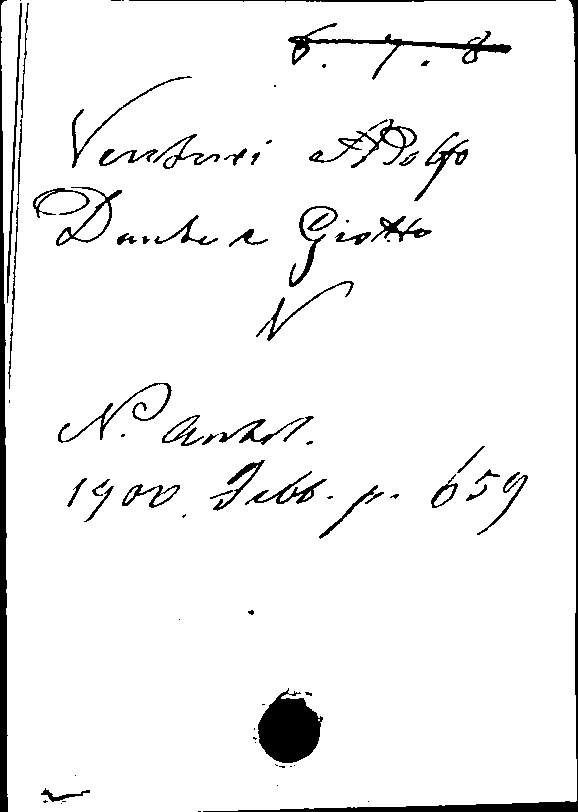 6. 7. 8
Venturi Adolfo
Dante e Giotto
N
N. Antol.
1900. Febb. p. 659